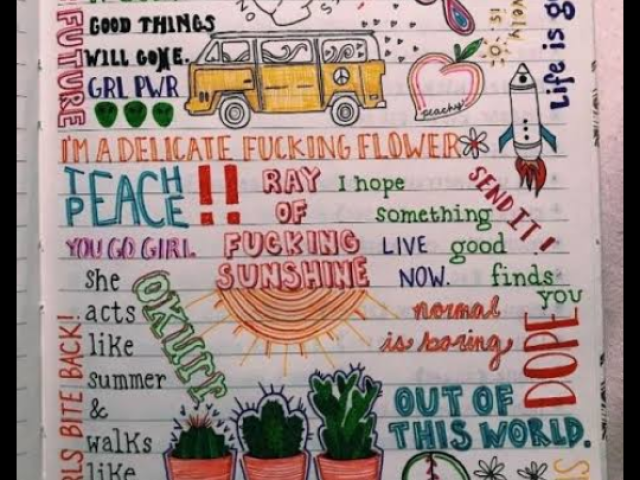 FUTURE
GOOD THINGS
WILL COME.
GRL PWR
peachy!
Life is g
I'M A DELICATE FUCKING FLOWER
TEACH
PEACE
!!
RAY
OF
FUCKING
SUNSHINE
I hope
something
good
finds
you
SEND IT!
YOU GO GIRL
LIVE
NOW.
she
acts
like
summer
&
walks
like
OKURR
normal
is boring
DOPE
RLS BITE BACK!
OUT OF
THIS WORLD.